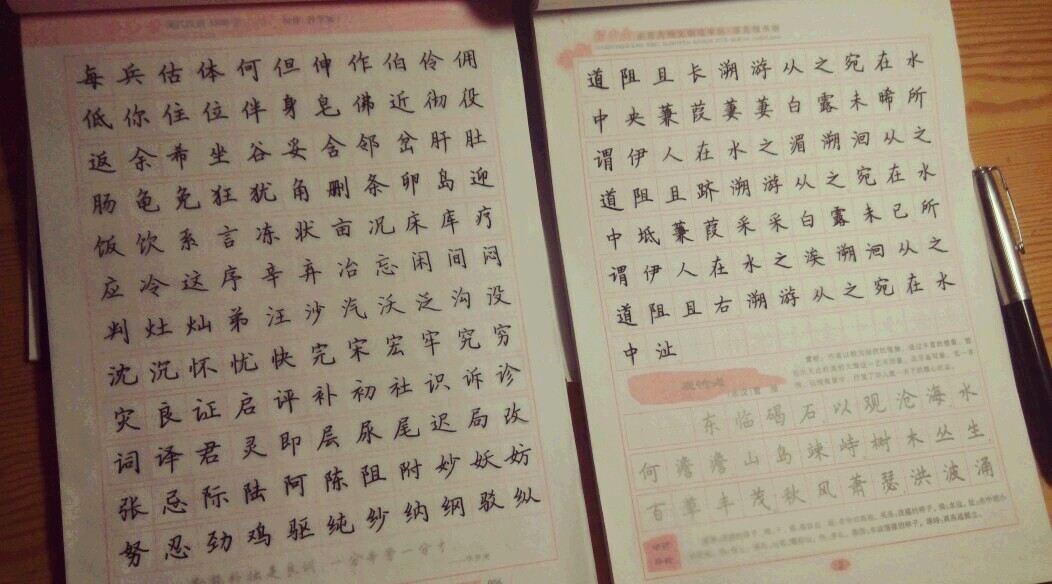 每兵估体何但伸作伯伶佣
低你住位伴身皂佛近彻役
返余希坐谷妥含邻岔肝肚
肠龟免狂犹角删条卵岛迎
饭饮系言冻状亩况床库疗
应冷这序辛弃冶忘闲间闷
判灶灿弟汪沙汽沃泛沟没
沈沉怀忧快完宋宏牢究穷
灾良证启评补初社识诉诊
词译君灵即层尿尾迟局改
张忌际陆阿陈阻附妙妖妨
努忍劲鸡驱纯纱纳纲驳纵
是良训 一分辛苦一分才
道阻且长溯游从之宛在水
中央蒹葭萋萋白露未晞所
谓伊人在水之湄溯洄从之
道阻且跻溯游从之宛在水
中坻蒹葭采采白露未已所
谓伊人在水之涘溯洄从之
道阻且右溯游从之宛在水
中沚
观沧海
东临碣石以观沧海水
何澹澹山岛竦峙树木丛生
百草丰茂秋风萧瑟洪波涌